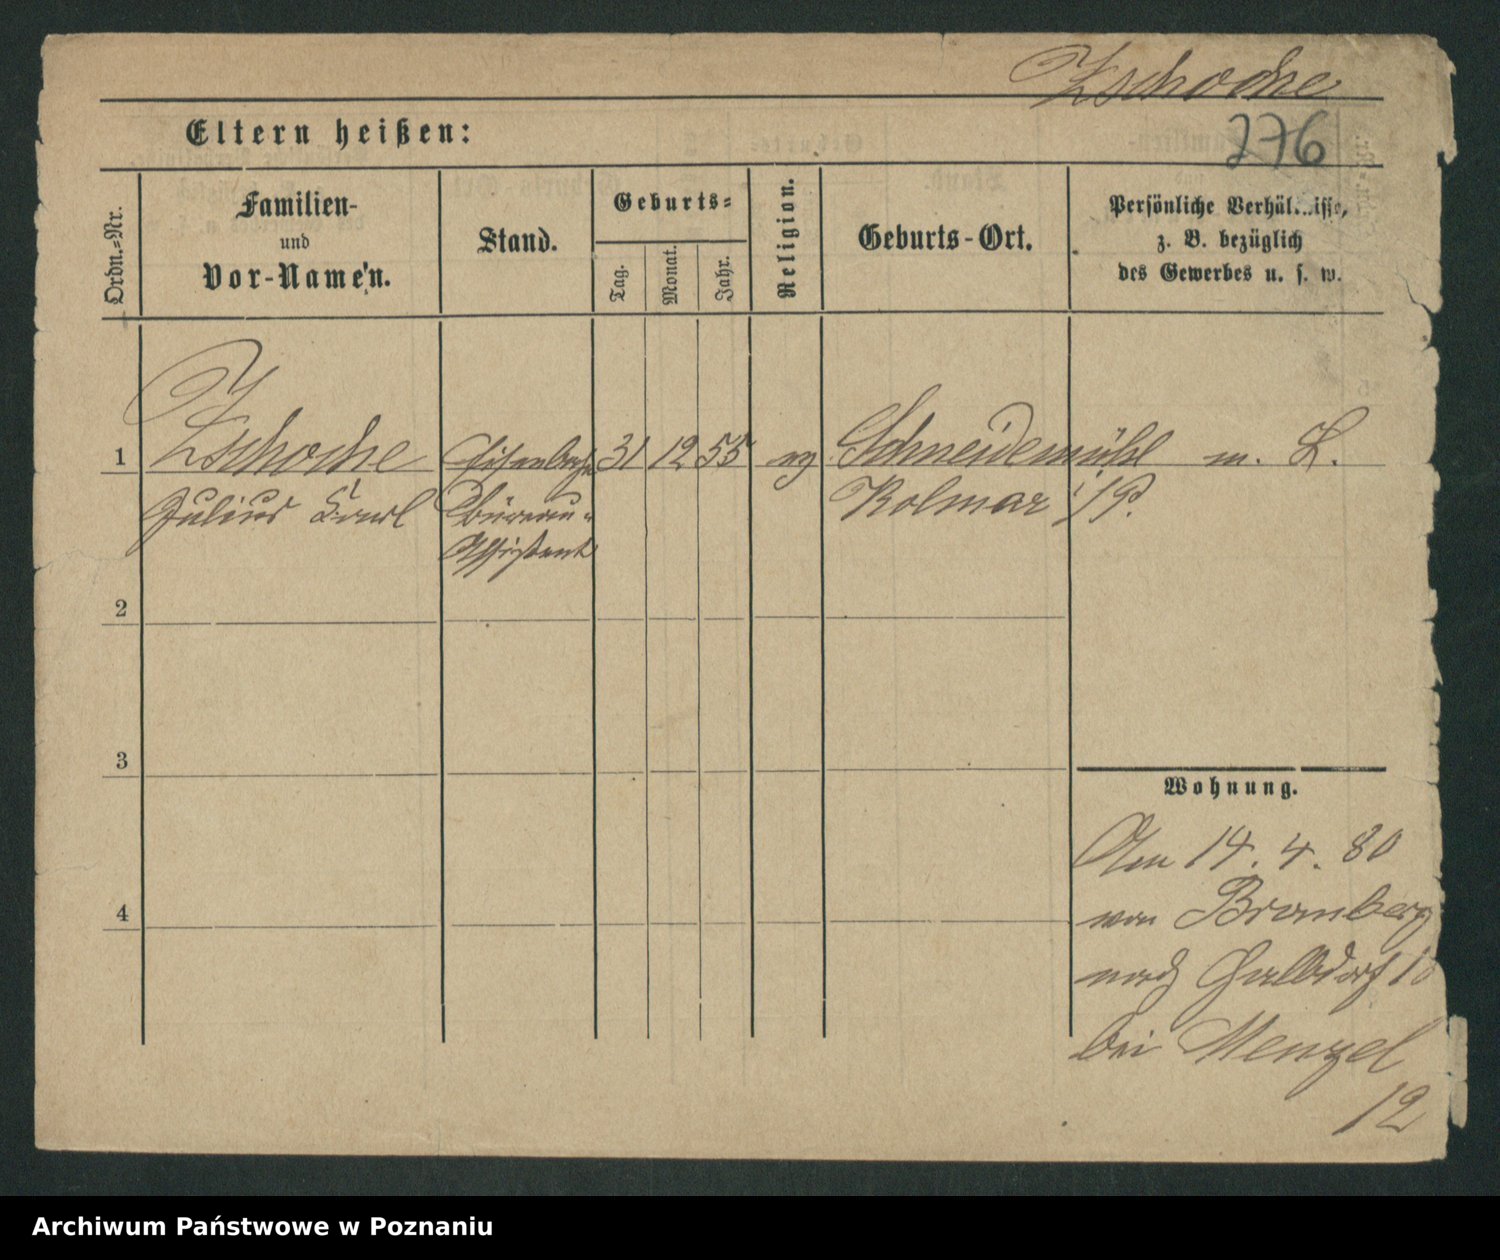 Zschoche
276
Eltern heißen:
Ordn.-Nr.
Familien-
und
Vor-Namen.
Stand.
Geburts-
Tag.
Monat.
Jahr.
Religion.
Geburts-Ort.
Persönliche Verhältnisse,
z. B. bezüglich
des Gewerbes u. s. w.
1 Zschoche Eisenbahn 31 12 55 ev Schneidemühl m. L.
Julius Karl Büreau- Kolmar i/P.
Assistent
2
3
Wohnung.
14. 4. 80
von Bromberg
4
nach
bei Menzel
12
Archiwum Państwowe w Poznaniu